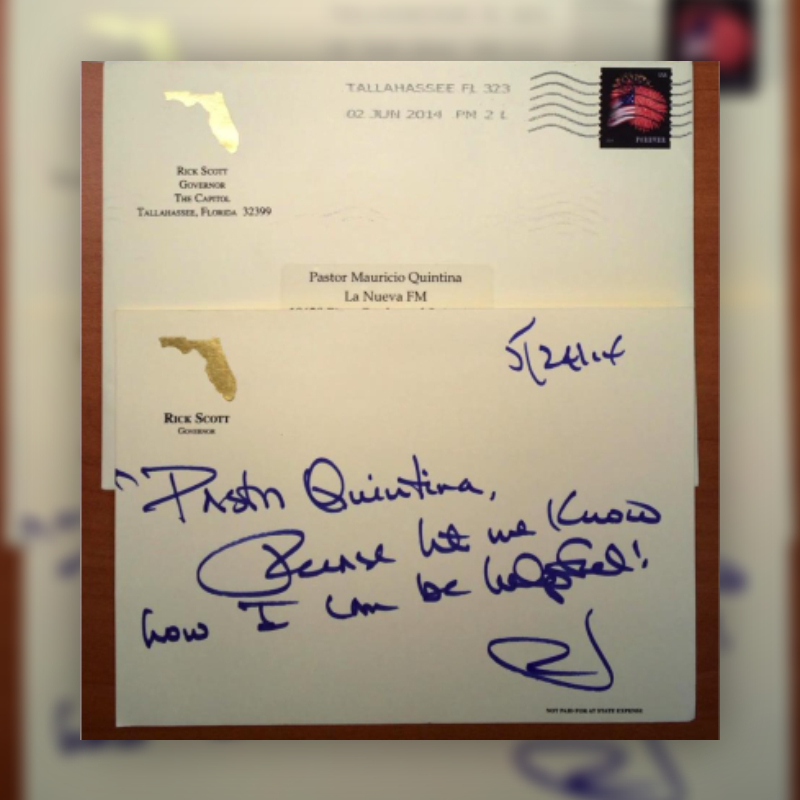 TALLAHASSEE FL 323
02 JUN 2014 PM 2 L
FOREVER
RICK SCOTT
GOVERNOR
THE CAPITOL
TALLAHASSEE, FLORIDA 32399
Pastor Mauricio Quintina
La Nueva FM
RICK SCOTT
GOVERNOR
Pastor Quintina,
Please let me know
how I can be helpful!
NOT PAID FOR AT STATE EXPENSE